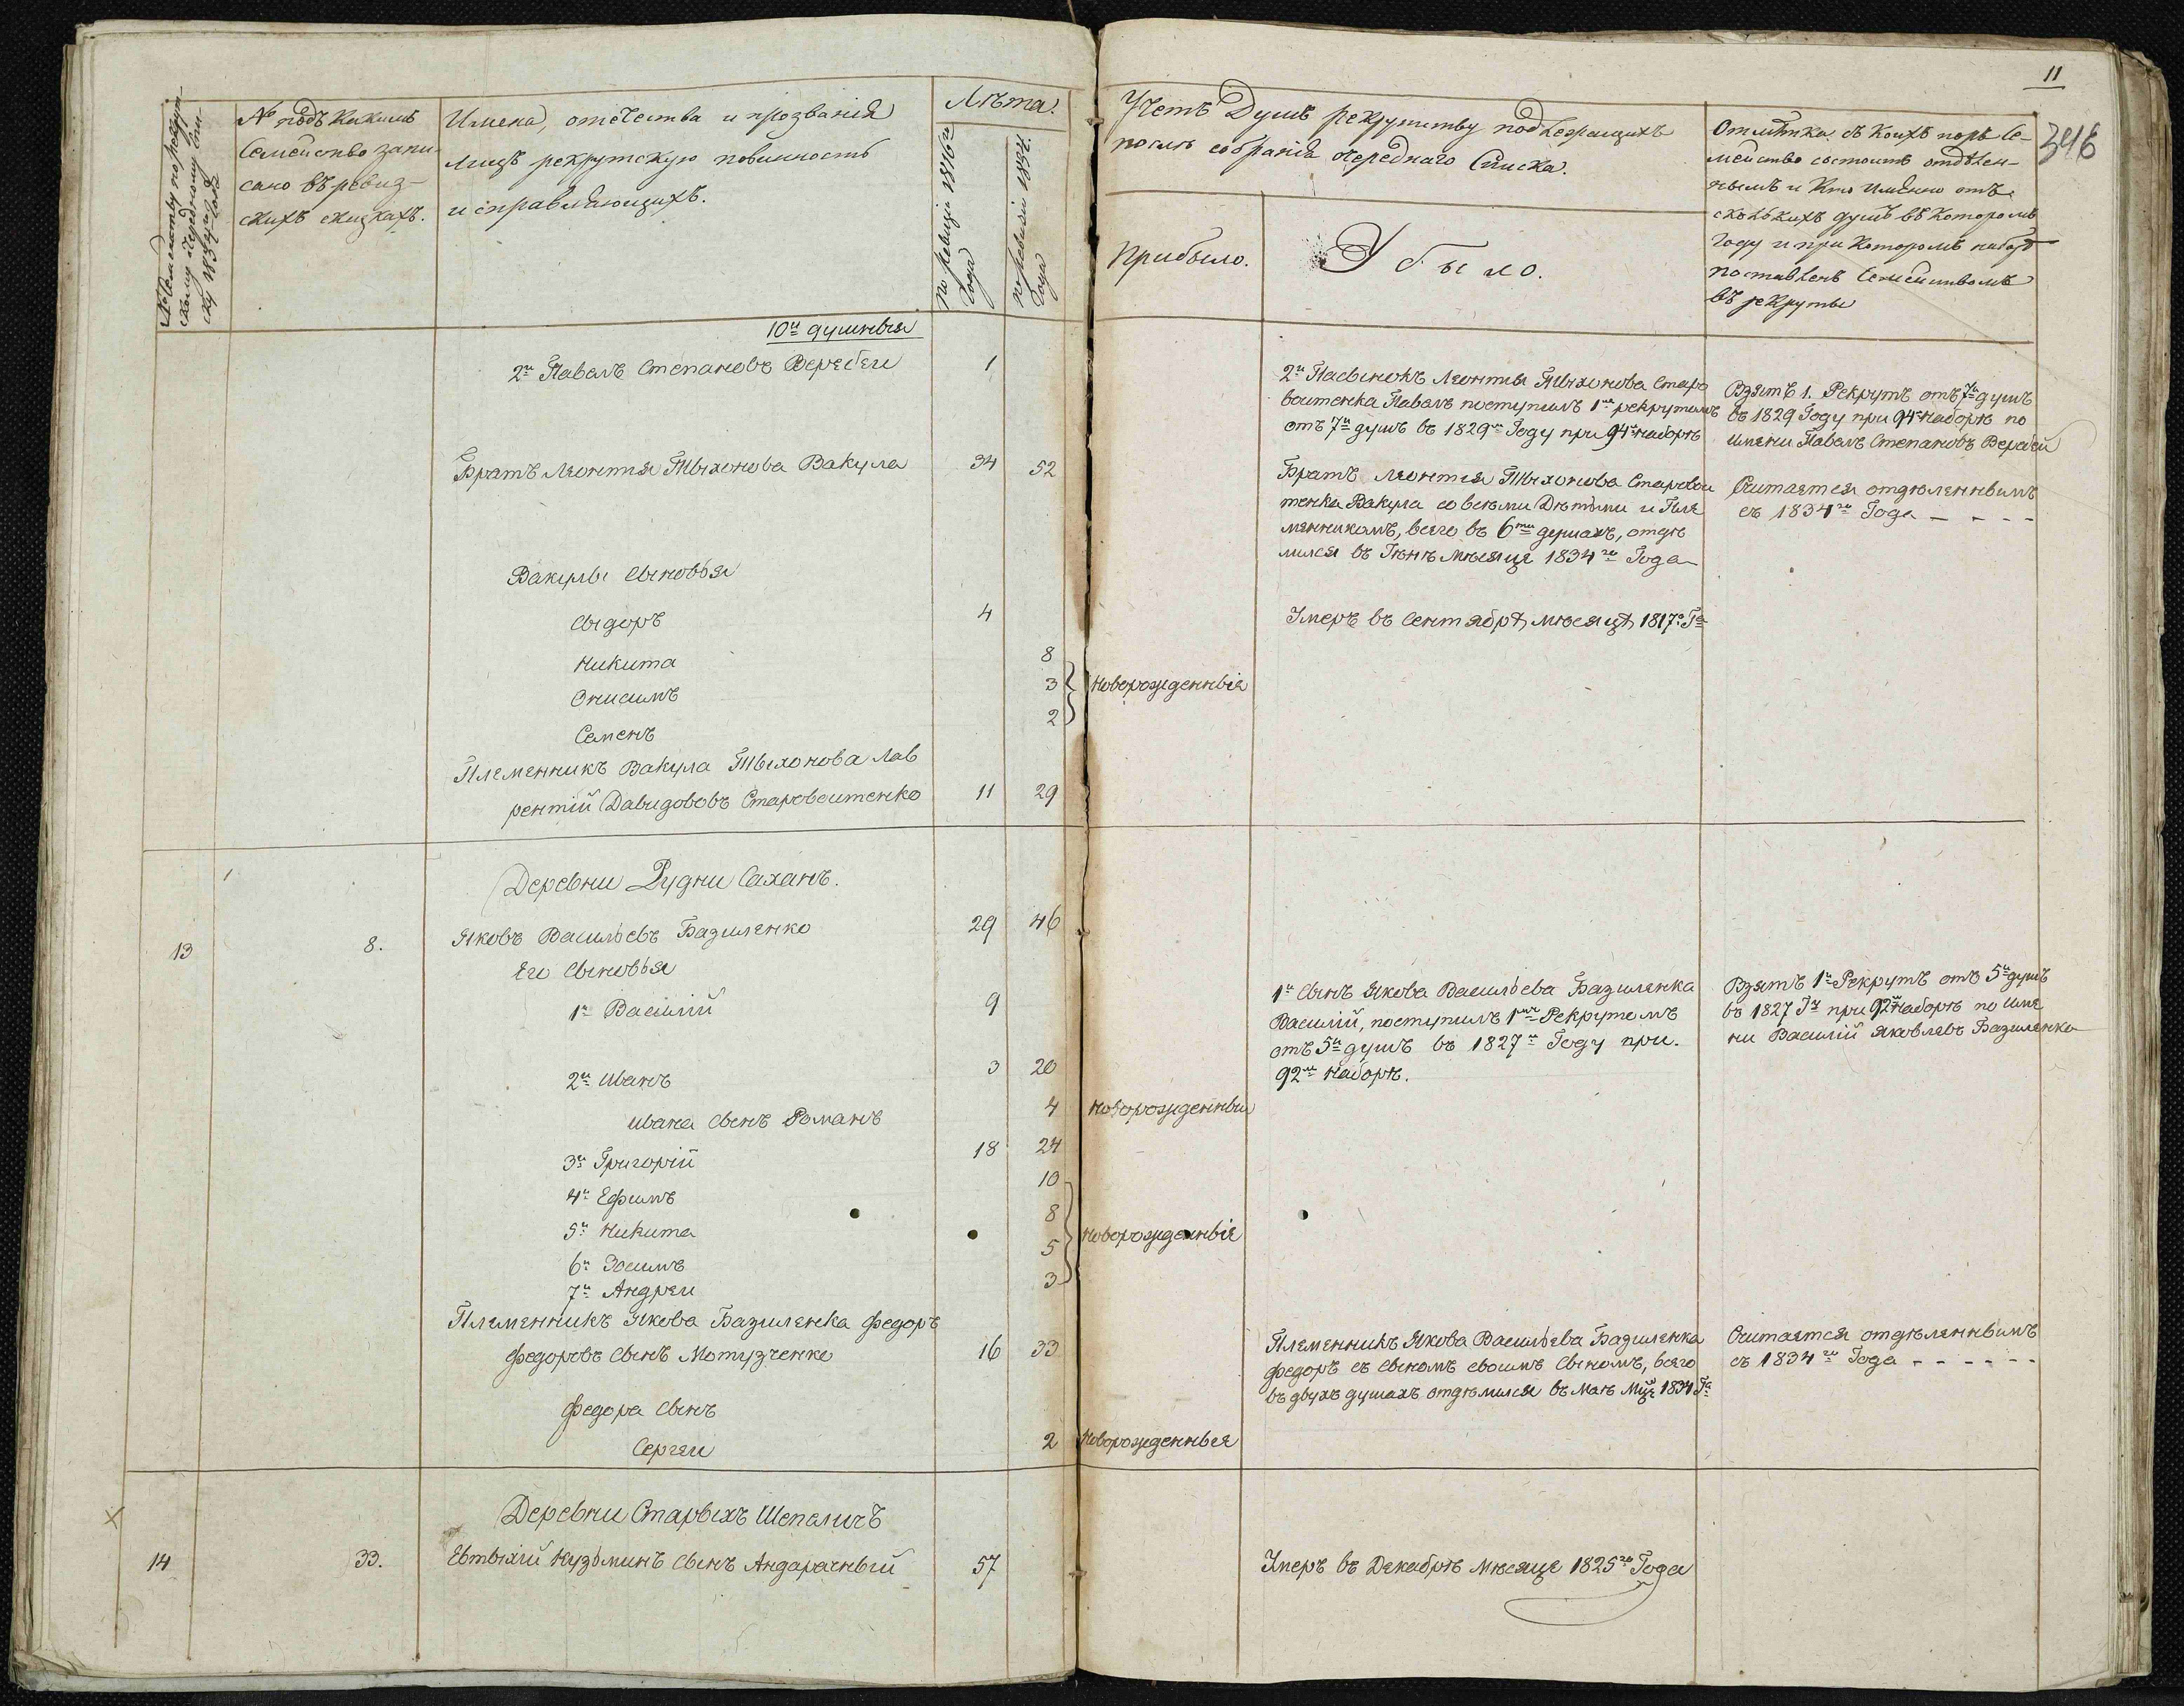 11
346
№ Семейству по рекрут-
скому очередному спи-
ску 1834го года
№ подъ какимъ
Семейство запи-
сано въ ревиз-
скихъ сказкахъ.
Имена, отечества и прозванія
лицъ рекрутскую повинность
исправляющихъ.
Лѣта.
по ревизіи 1816го
года
по ревизіи 1834.
года
Учетъ Душъ рекрутству подлежащихъ
послѣ собранія очереднаго Списка.
Прибыло.
Убыло.
Отмѣтка съ коихъ поръ Се-
мейство состоитъ отдѣлен-
нымъ и кто именно отъ
сколькихъ душъ въ которомъ
году и при которомъ наборѣ
поставленъ Семействомъ
въ рекруты
10и душныя
2й Павелъ Степановъ Веребей
1
2й Пасынокъ Леонтія Тыхонова Старо
войтенка Павелъ поступилъ 1мъ рекрутомъ
отъ 7и душъ въ 1829м Году при 94м наборѣ
Взятъ 1. Рекрутъ отъ 7и душъ
въ 1829 Году при 94 наборѣ по
имени Павелъ Степановъ Верабей
Братъ Леонтія Тыхонова Вакула
34 52
Братъ Леонтія Тыхонова Старовой
тенка Вакула со всѣми Дѣтьми и Пле
мянникомъ, всего въ 6ти душахъ, отдѣ
лился въ Іюнѣ Мѣсяце 1834го Года
Считается отдѣленнымъ
съ 1834го Года - - - -
Вакулы Сыновья
Сыдоръ
4
Умеръ въ Сентябрѣ мѣсяцѣ 1817го Га
Никита
8
Онисимъ
3
Новорожденныя
Семенъ
2
Племенникъ Вакула Тыхонова Лав
рентій Давидововъ Старовойтенко
11 29
Деревни Рудни Саханъ.
13
8.
Яковъ Васильевъ Базиленко
29 46
Его Сыновья
1й Василій
9
1й Сынъ Якова Васильева Базиленка
Василій, поступилъ 1мъ Рекрутомъ
отъ 5и душъ въ 1827м Году при.
92мъ Наборѣ.
Взятъ 1й Рекрутъ отъ 5и душъ
въ 1827 Гу при 92м Наборѣ по име
ни Василій Яковлевъ Базиленко
2й Иванъ
3 20
Ивана Сынъ Романъ
4
Новорожденный
3й Григорій
18 24
4й Ефимъ
10
5й Никита
8
Новорожденныя
6й Зосимъ
5
7й Андрей
3
Племянникъ Якова Базиленка Федоръ
Федоровъ Сынъ Мотузченко
16 33
Племянникъ Якова Васильева Базиленка
Федоръ съ Сыномъ своимъ Сыномъ, всего
въ двухъ душахъ отдѣлился въ Маѣ Мцѣ 1834 Га
Считается отдѣленнымъ
съ 1834го Года - - - - - -
Федора Сынъ
Сергей
2
Новорожденныя
Деревни Старыхъ Шепеличъ
14
33.
Евтыхій Кузьминъ Сынъ Андарачный
57
Умеръ въ Декабрѣ Мѣсяце 1825го Года